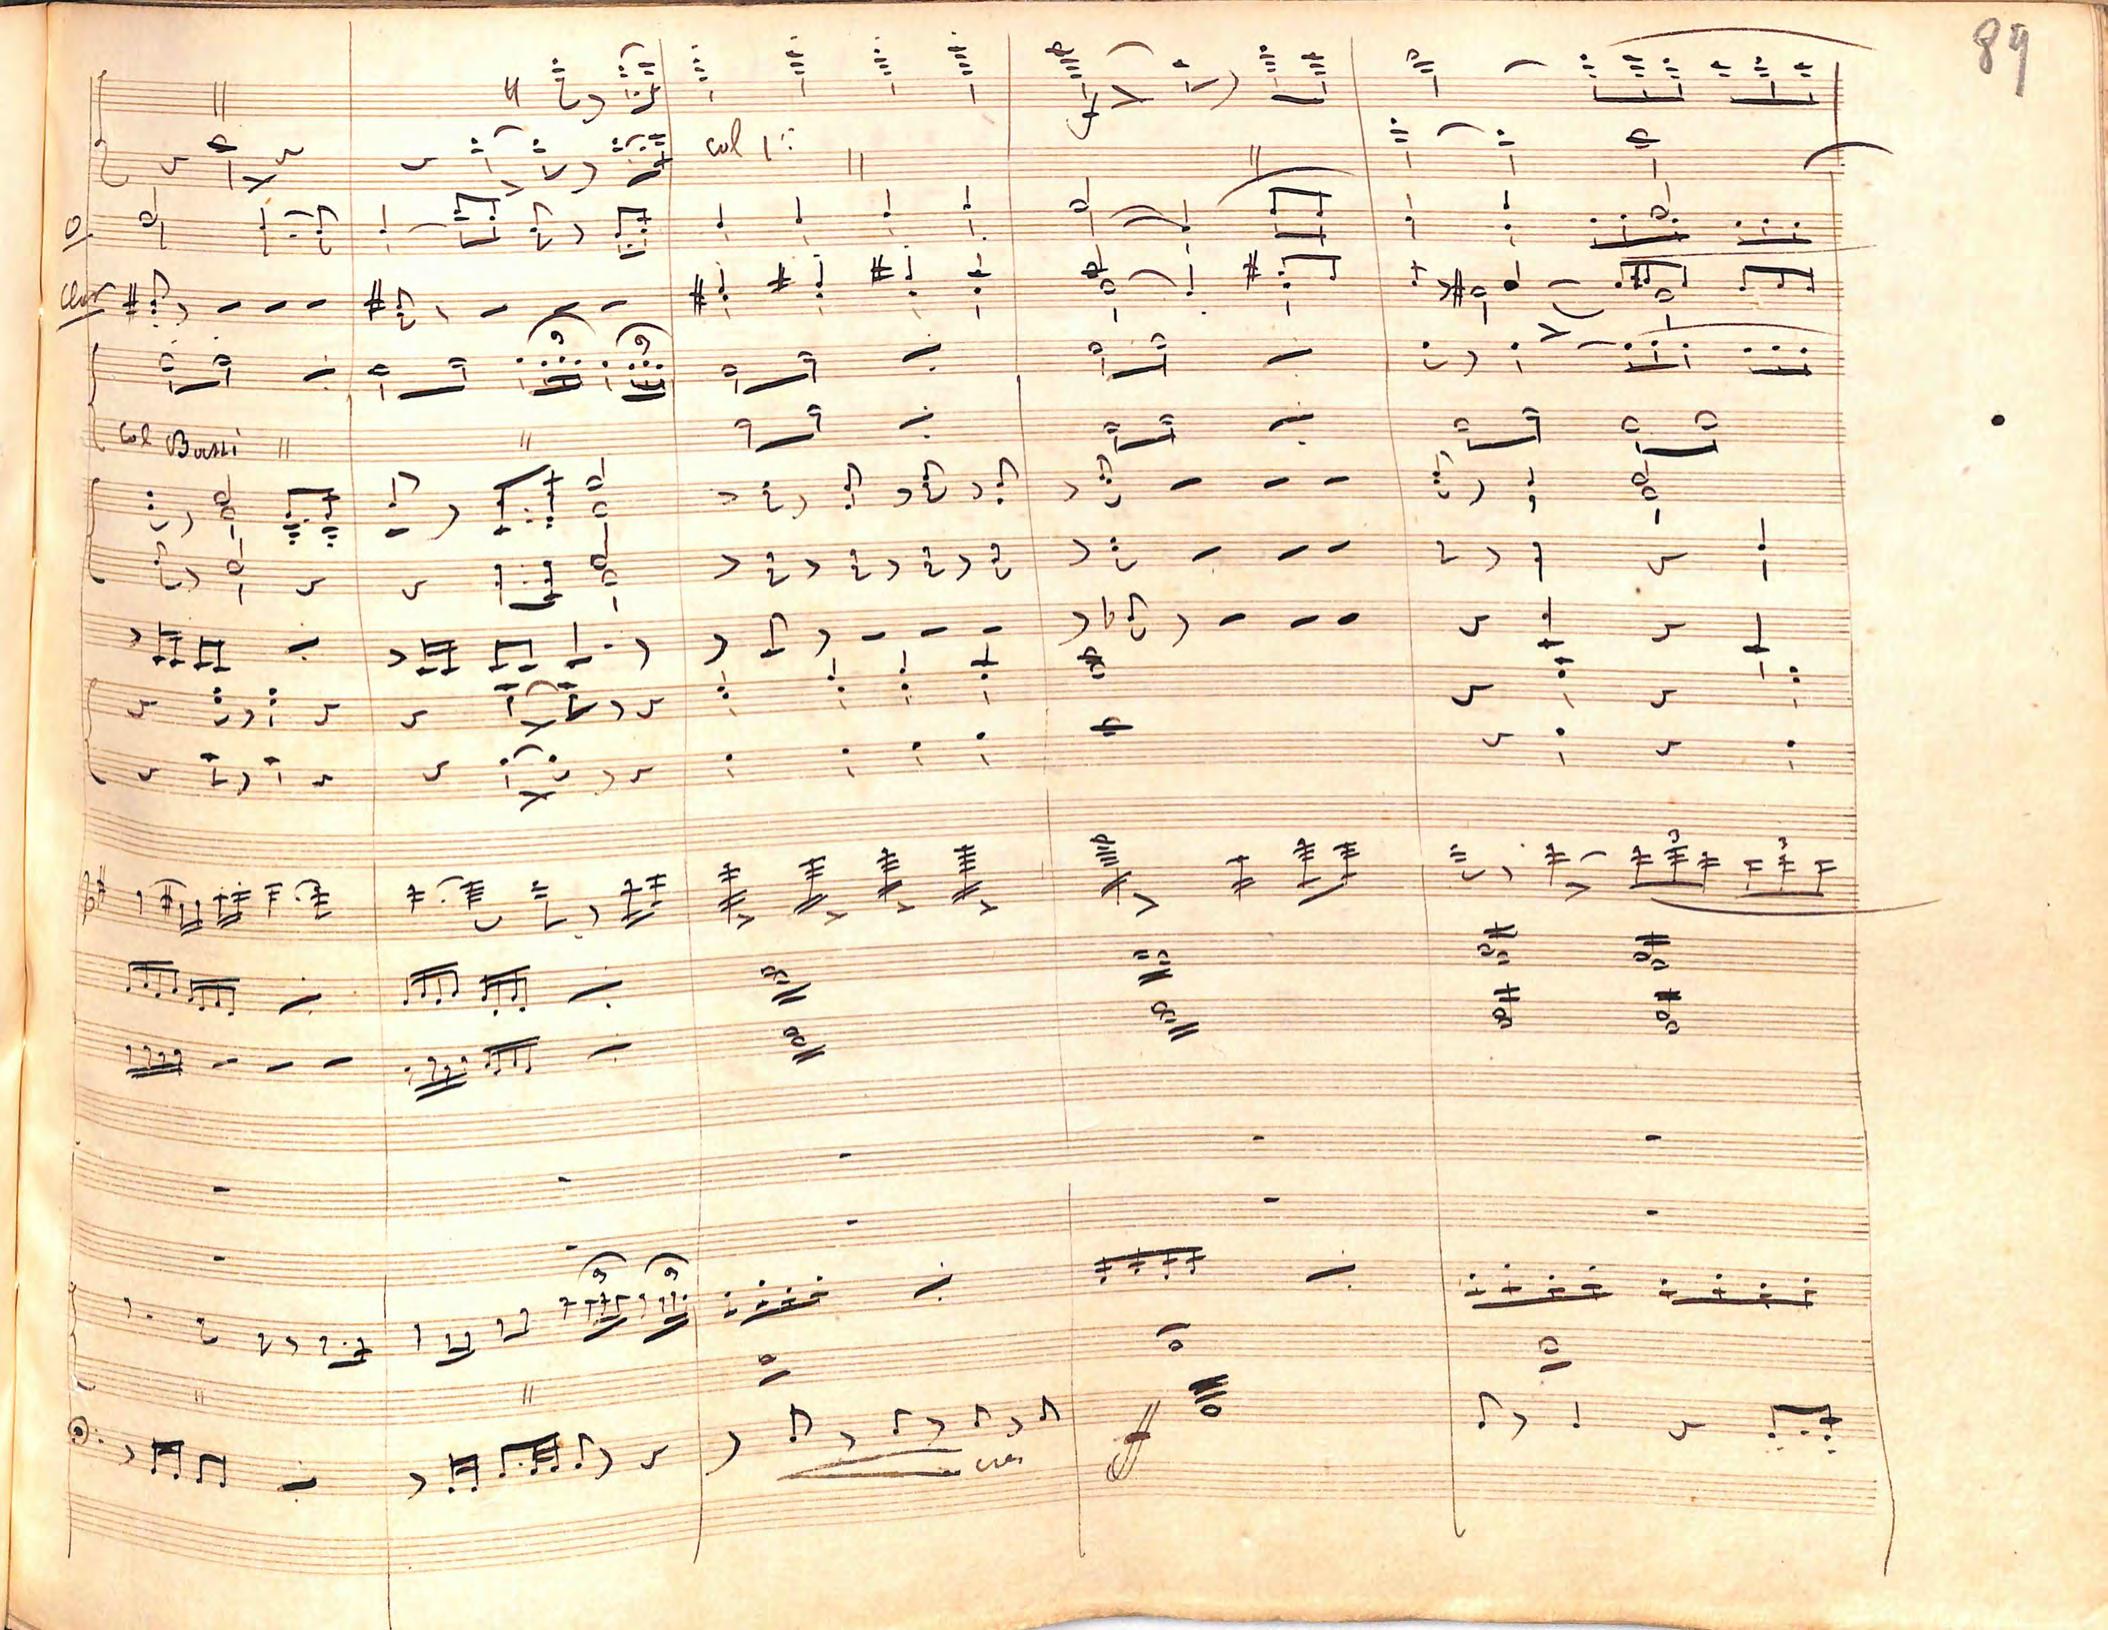 89
col 1º
O
Clar
col Bassi
3 3
cres